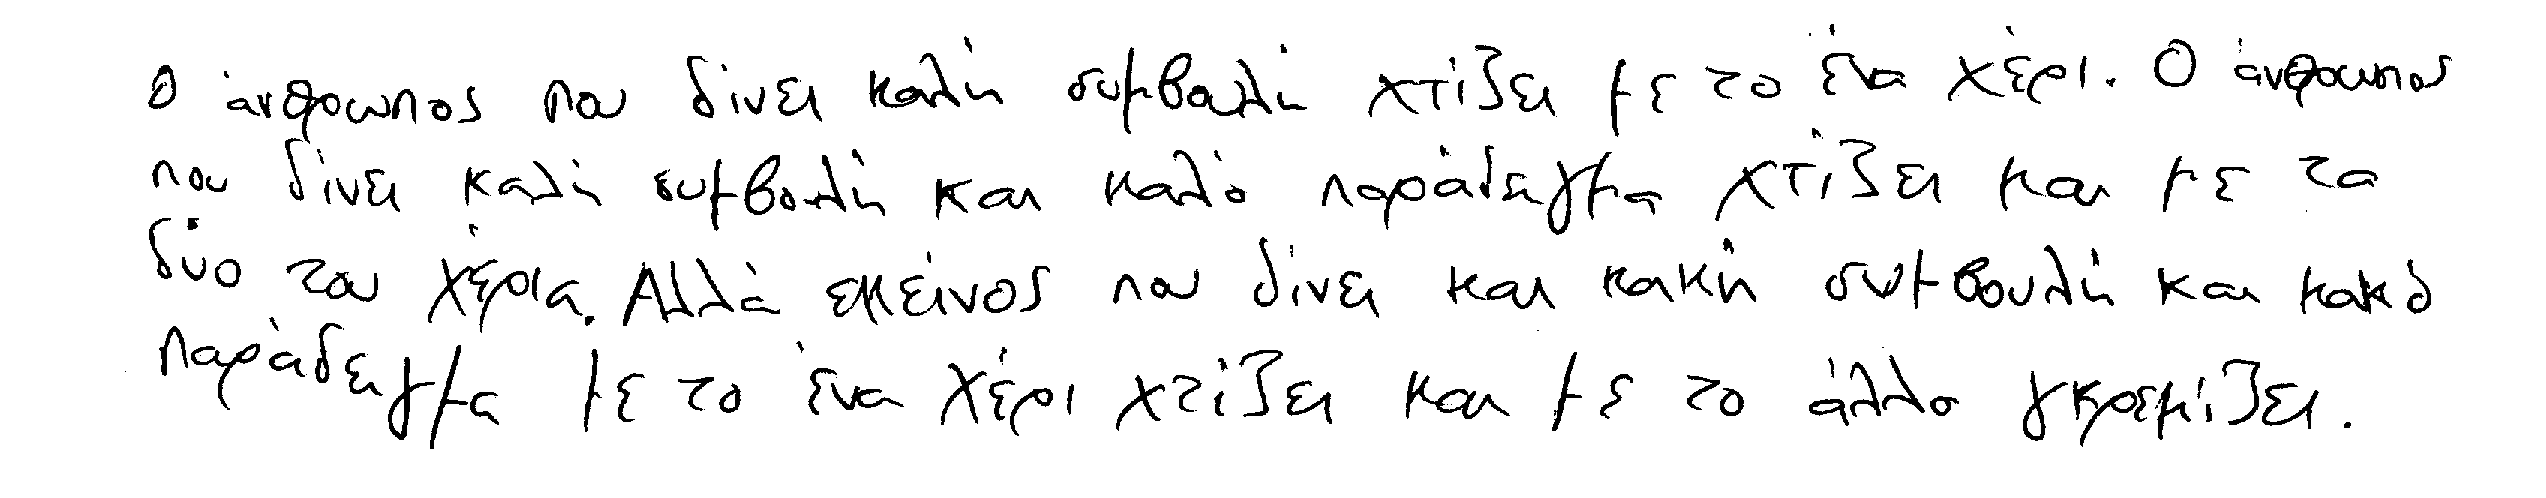 Ο άνθρωπος που δίνει καλή συμβουλή χτίζει με το ένα χέρι. Ο άνθρωπος
που δίνει καλή συμβουλή και καλό παράδειγμα χτίζει και με τα
δύο του χέρια. Αλλά εκείνος που δίνει και κακή συμβουλή και κακό
παράδειγμα με το ένα χέρι χτίζει και με το άλλο γκρεμίζει.